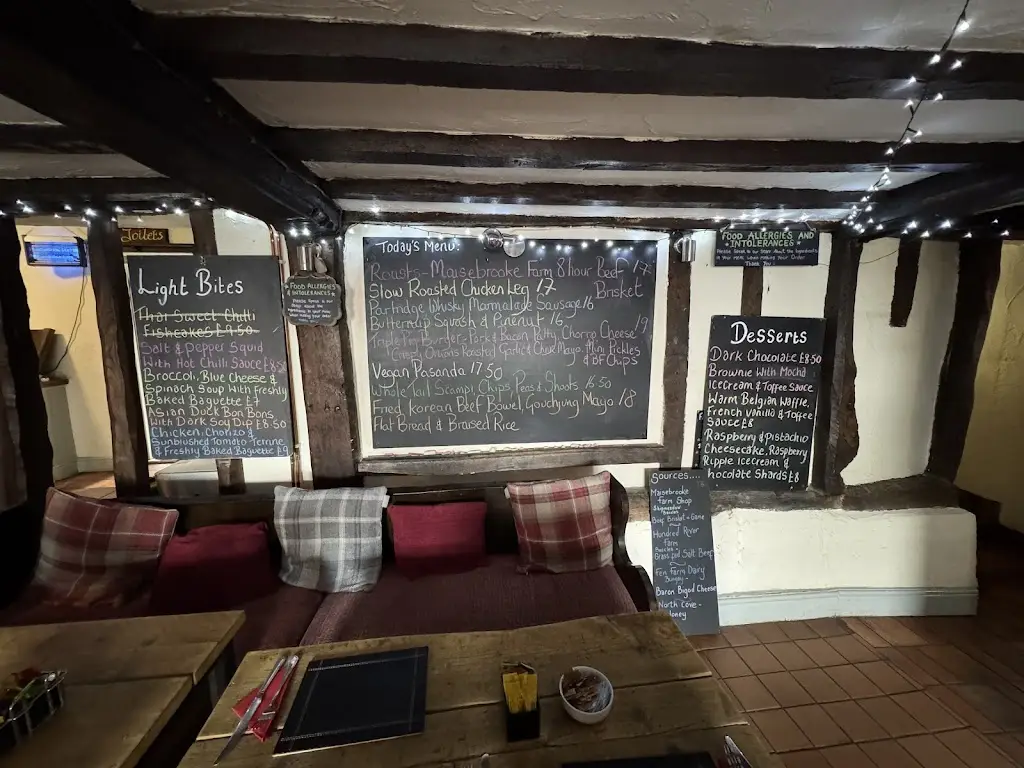 Toilets
Light Bites
Thai Sweet Chilli
Fishcakes £9.50
Salt & Pepper Squid
With Hot Chilli Sauce £8.50
Broccoli, Blue Cheese &
Spinach Soup with Freshly
Baked Baguette £7
Asian Duck Bon Bons
With Dark Soy Dip £8.50
Chicken, Chorizo &
Sunblushed Tomato Terrine,
& Freshly Baked Baguette £9
Food Allergies
& Intolerances
Please Speak to our
Today's Menu:
Roasts - Maisebrooke Farm 8 hour Beef 17
Brisket
Slow Roasted Chicken Leg 17
Partridge Whisky Marmalade Sausage 16
Butternut Squash & Pinenut 16
Burger - Pork & Bacon Patty, Chorizo Cheese 19
Crispy Onions Roasted Garlic & Chive Mayo, Pickles
& BF Chips
Vegan Pasanda 17.50
Whole Tail Scampi, Chips, Peas & Shoots 16.50
Fried Korean Beef Bowel, Gouchjung Mayo 18
Flat Bread & Braised Rice
Food Allergies and
Intolerances
Please Speak to our Staff about the ingredients
in your meal when making your order
Thank you
Desserts
Dark Chocolate £8.50
Brownie With Mocha
Icecream & Toffee Sauce
Warm Belgian Waffle,
French Vanilla & Toffee
Sauce £8
Raspberry & Pistachio
Cheesecake, Raspberry
Ripple Icecream &
Chocolate Shards £8
Sources....
Maisebrooke
Farm Shop
Beef Brisket - Game
Hundred River
Farm
Grass fed Salt Beef
Fen Farm Dairy
Bungay -
Baron Bigod Cheese
North Cove -
Honey